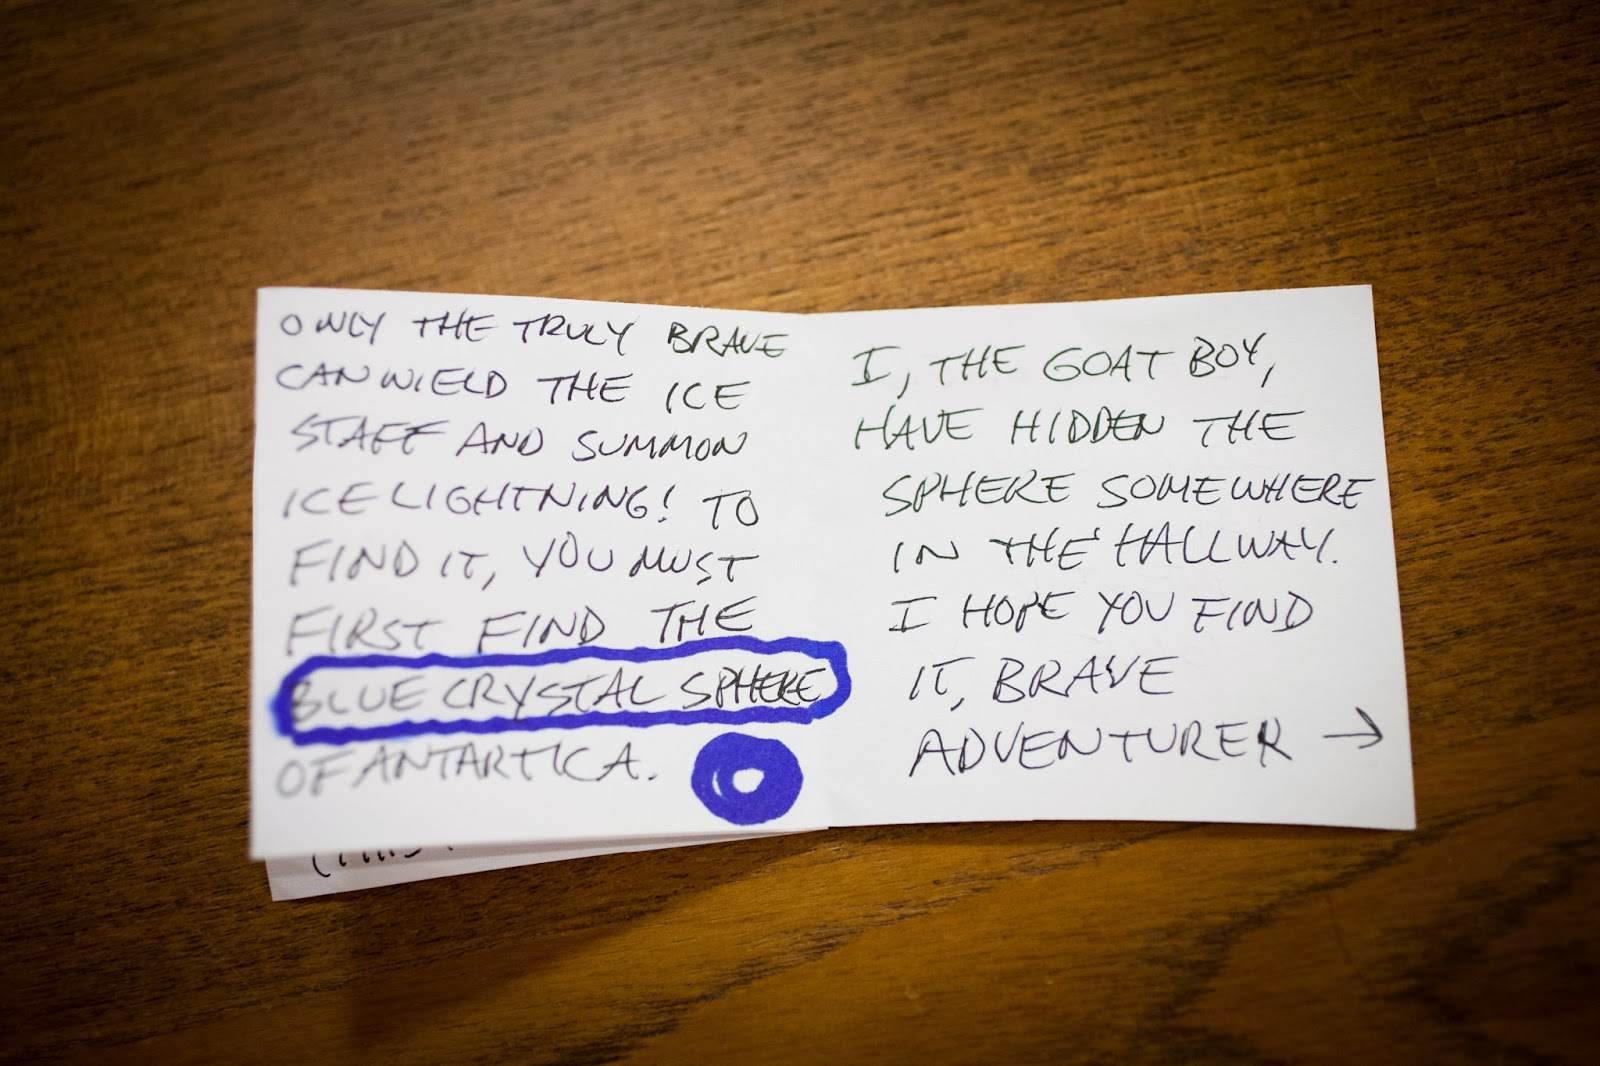 ONLY THE TRULY BRAVE
CAN WIELD THE ICE
STAFF AND SUMMON
ICE LIGHTNING! TO
FIND IT, YOU MUST
FIRST FIND THE
BLUE CRYSTAL SPHERE
OF ANTARTICA.
I, THE GOAT BOY,
HAVE HIDDEN THE
SPHERE SOMEWHERE
IN THE HALLWAY.
I HOPE YOU FIND
IT, BRAVE
ADVENTURER →